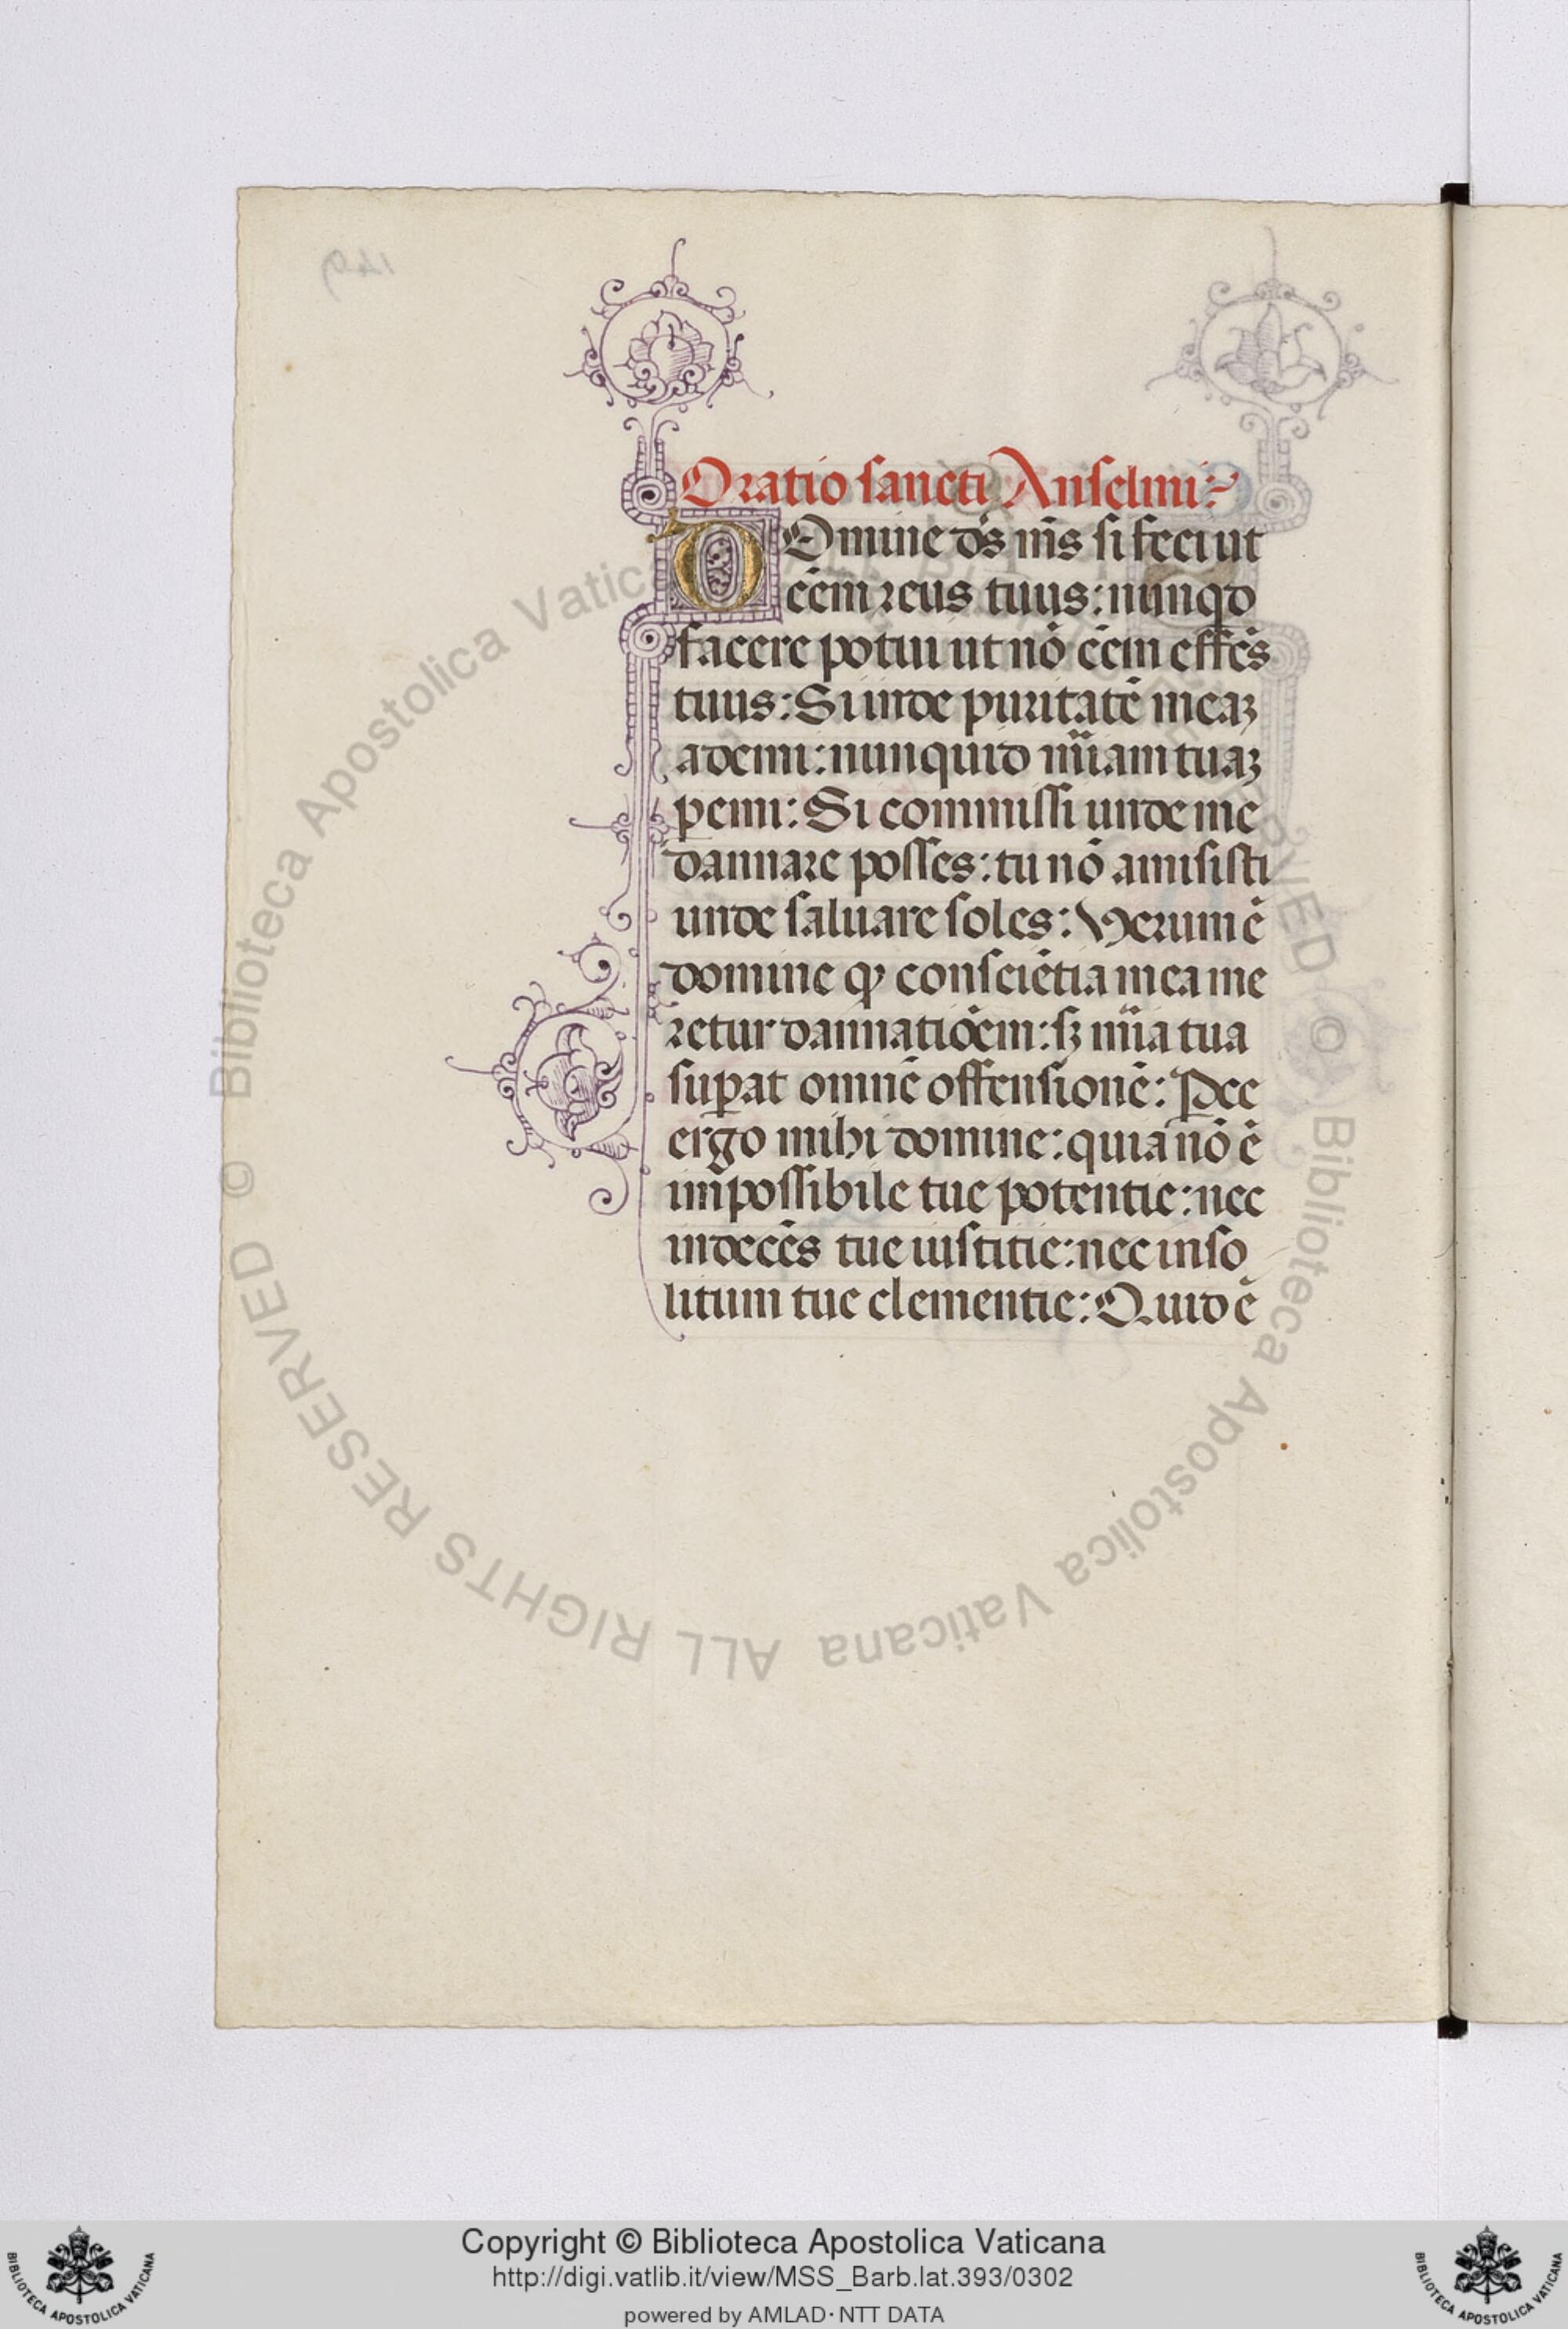 Oratio sancti Anselmi:
DOmine ds̄ nr̄s si feci ut
eēm reus tuus: nunqd
facere potui ut nō eēm effēs
tuus: Si inde puritatē meaʒ
ademi: nunquid mi̅am tuaʒ
pemi: Si commissi unde me
dannare posses: tu nō amisisti
unde saluare soles: Verum ē
domine qꝫ consciētia mea me
retur dannatiōem: sʒ mi̅a tua
suꝑat omnē offensionē: Pcc
ergo mihi domine: quia nō ē
impossibile tue potentie: nec
indecēs tue iustitie: nec inso
litum tue clementie: Quid ē
© Biblioteca Apostolica Vaticana ALL RIGHTS RESERVED
© Biblioteca Apostolica Vaticana ALL RIGHTS RESERVED
Copyright © Biblioteca Apostolica Vaticana
http://digi.vatlib.it/view/MSS_Barb.lat.393/0302
powered by AMLAD·NTT DATA
BIBLIOTECA APOSTOLICA VATICANA
BIBLIOTECA APOSTOLICA VATICANA